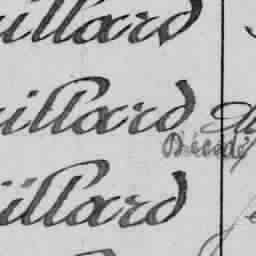 illard
illard
Décédé
illard